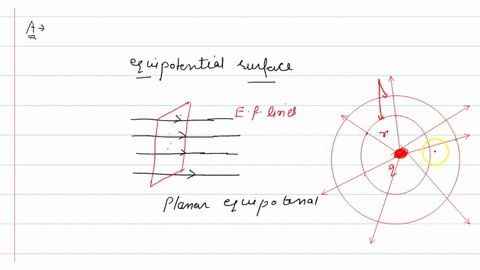 A →
equipotential surface
E.f lines
r
q
Planar equipotenial